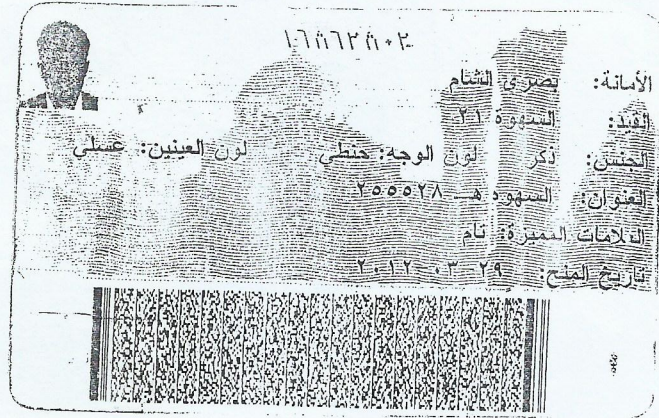 الأمانة: بصرى الشام
القيد: السهوة ٢١
الجنس: ذكر لون الوجه: حنطي لون العينين: عسلي
العنوان: السهوه هـ ٢٥٥٥٢٨
العلامات المميزة: تام
تاريخ المنح: ٢٩ ٠٣ ٢٠١٢